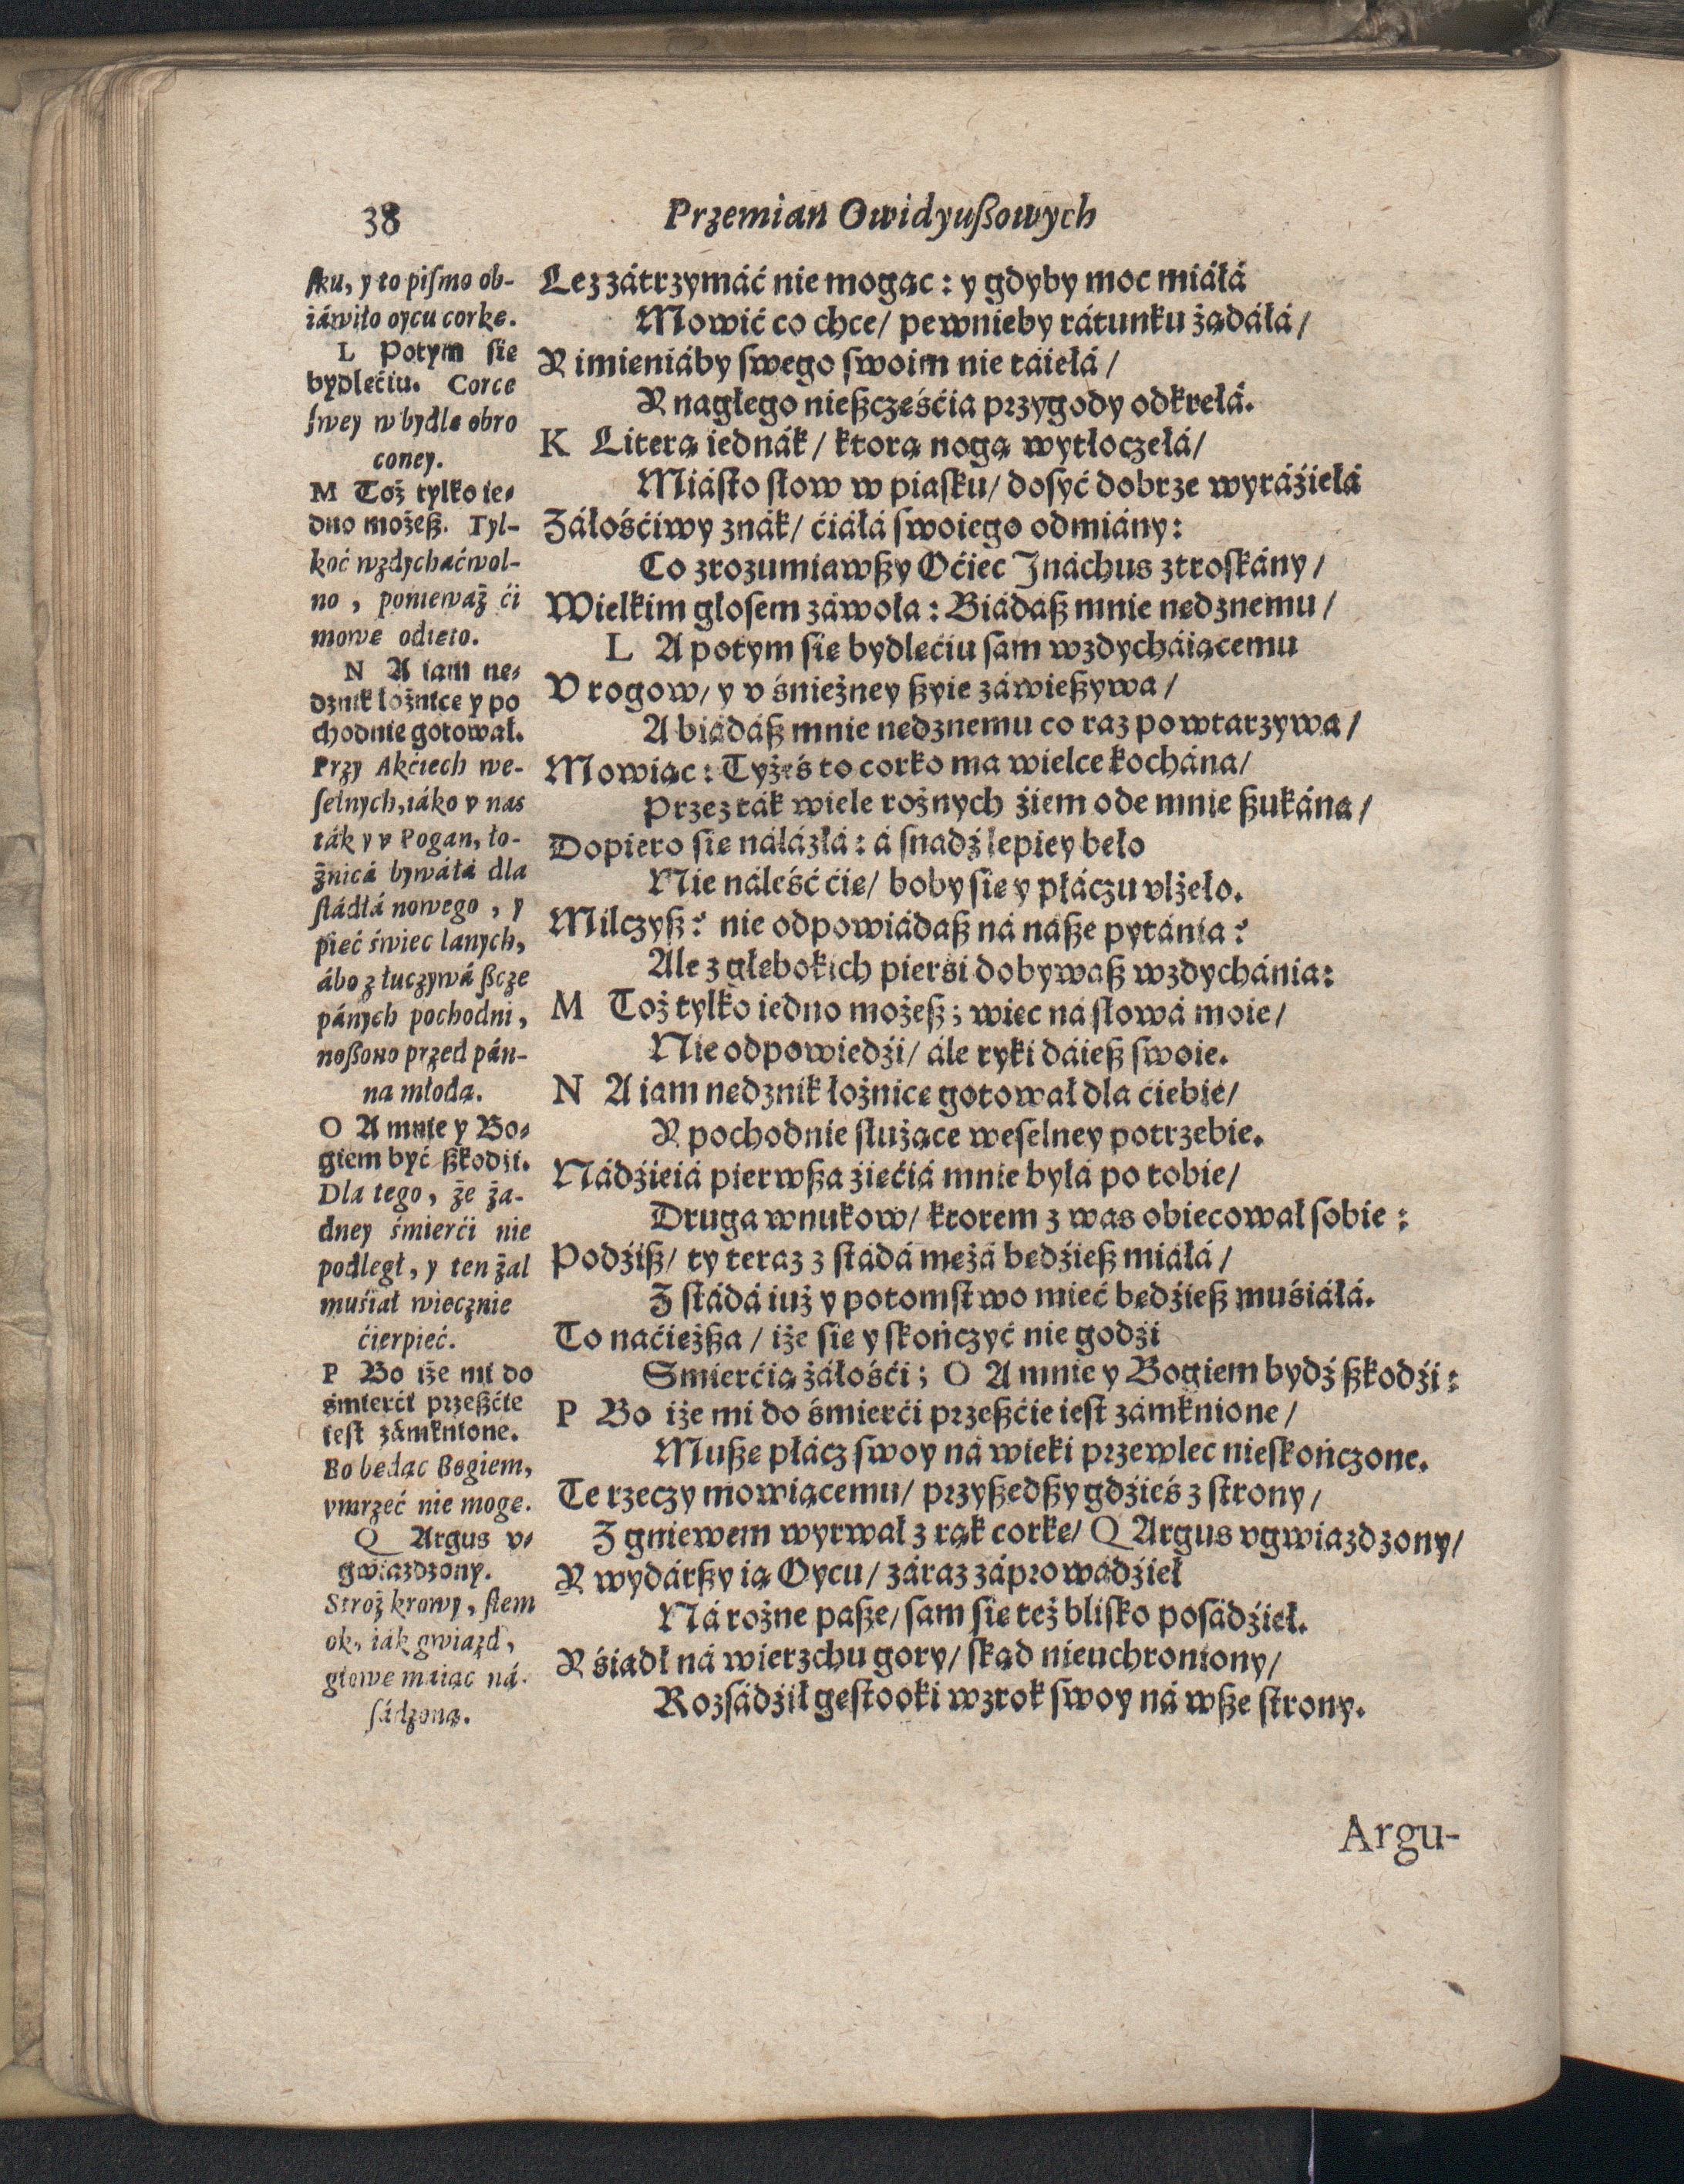 38
Przemian Owidyuſzowych
ſku, y to piſmo ob-
iáwiło oycu corkę.
L Potym ſie
bydlęćiu. Corce
ſwey w bydlę obro
coney.
M Toż tylko ie-
dno możeß. Tyl-
koć wzdycháć wol-
no, ponieważ ći
mowę odięto.
N A iam nę-
dznik łożnice y po
chodnie gotował.
Przy Akćiech we-
ſelnych, iáko v nas
ták y v Pogan, ło-
żnicá bywáłá dla
ſtádłá nowego, y
pięć świec lanych,
ábo z łuczywá ßcze
pánych pochodni,
noßono przed pán-
ną młodą.
O A mnie y Bo-
giem być ßkodźi.
Dla tego, że ża-
dney śmierći nie
podległ, y ten żal
muśiał wiecznie
ćierpieć.
P Bo iże mi do
śmierći przeßćie
ieſt zámknione.
Bo będąc Bogiem,
vmrzeć nie mogę.
Q Argus v-
gwiazdzony.
Stroż krowy, ſtem
ok, iák gwiazd,
głowę máiąc ná-
ſádzoną.
Lez zátrzymáć nie mogąc: y gdyby moc miáłá
Mowić co chce/ pewnieby rátunku żądáłá/
Y imieniáby ſwego ſwoim nie táiełá/
Y nagłego nießczęśćia przygody odkrełá.
K Literą iednák/ ktorą nogą wytłoczełá/
Miáſto ſłow w piaſku/ dosyć dobrze wyráźiełá
Záłośćiwy znák/ ćiáłá ſwoiego odmiány:
Co zrozumiawßy Oćiec Jnáchus ztroſkány/
Wielkim głoſem záwoła: Biádaß mnie nędznemu/
L A potym ſie bydlęćiu ſam wzdycháiącemu
V rogow/ y v śnieżney ßyie záwießywa/
A biádáß mnie nędznemu co raz powtarzywa/
Mowiąc: Tyżeś to corko ma wielce kochána/
Przez ták wiele rożnych źiem ode mnie ßukána/
Dopiero ſie náłázłá: á ſnadź lepiey beło
Nie náleść ćie/ boby ſie y płáczu vlżeło.
Milczyß? nie odpowiádaß ná náße pytánia?
Ale z głębokich pierśi dobywaß wzdychánia:
M Toż tylko iedno możeß; więc ná ſłowá moie/
Nie odpowiedźi/ ále ryki dáieß ſwoie.
N A iam nędznik łożnice gotował dla ćiebie/
Y pochodnie służące weſelney potrzebie.
Nádźieiá pierwßa źięćiá mnie byłá po tobie/
Druga wnukow/ ktorem z was obiecował ſobie:
Podźiß/ ty teraz z ſtádá mężá będźieß miáłá/
Z ſtádá iuż y potomſtwo mieć będźieß muśiáłá.
To naćięższa/ iże ſie y ſkończyć nie godźi
Smierćią żáłośći; O A mnie y Bogiem bydź ßkodźi:
P Bo iże mi do śmierći przeßćie ieſt zámknione/
Mußę płácz ſwoy ná wieki przewlec nieſkończone.
Te rzeczy mowiącemu/ przyßedßy gdźieś z ſtrony/
Z gniewem wyrwał z rąk corkę/ Q Argus vgwiazdzony/
Y wydárßy ią Oycu/ záraz záprowádźieł
Ná rożne páße/ ſam ſie też bliſko poſádźieł.
Y śiadł ná wierzchu gory/ ſkąd nieuchroniony/
Rozſádźił gęſtooki wzrok ſwoy ná wße ſtrony.
Argu-